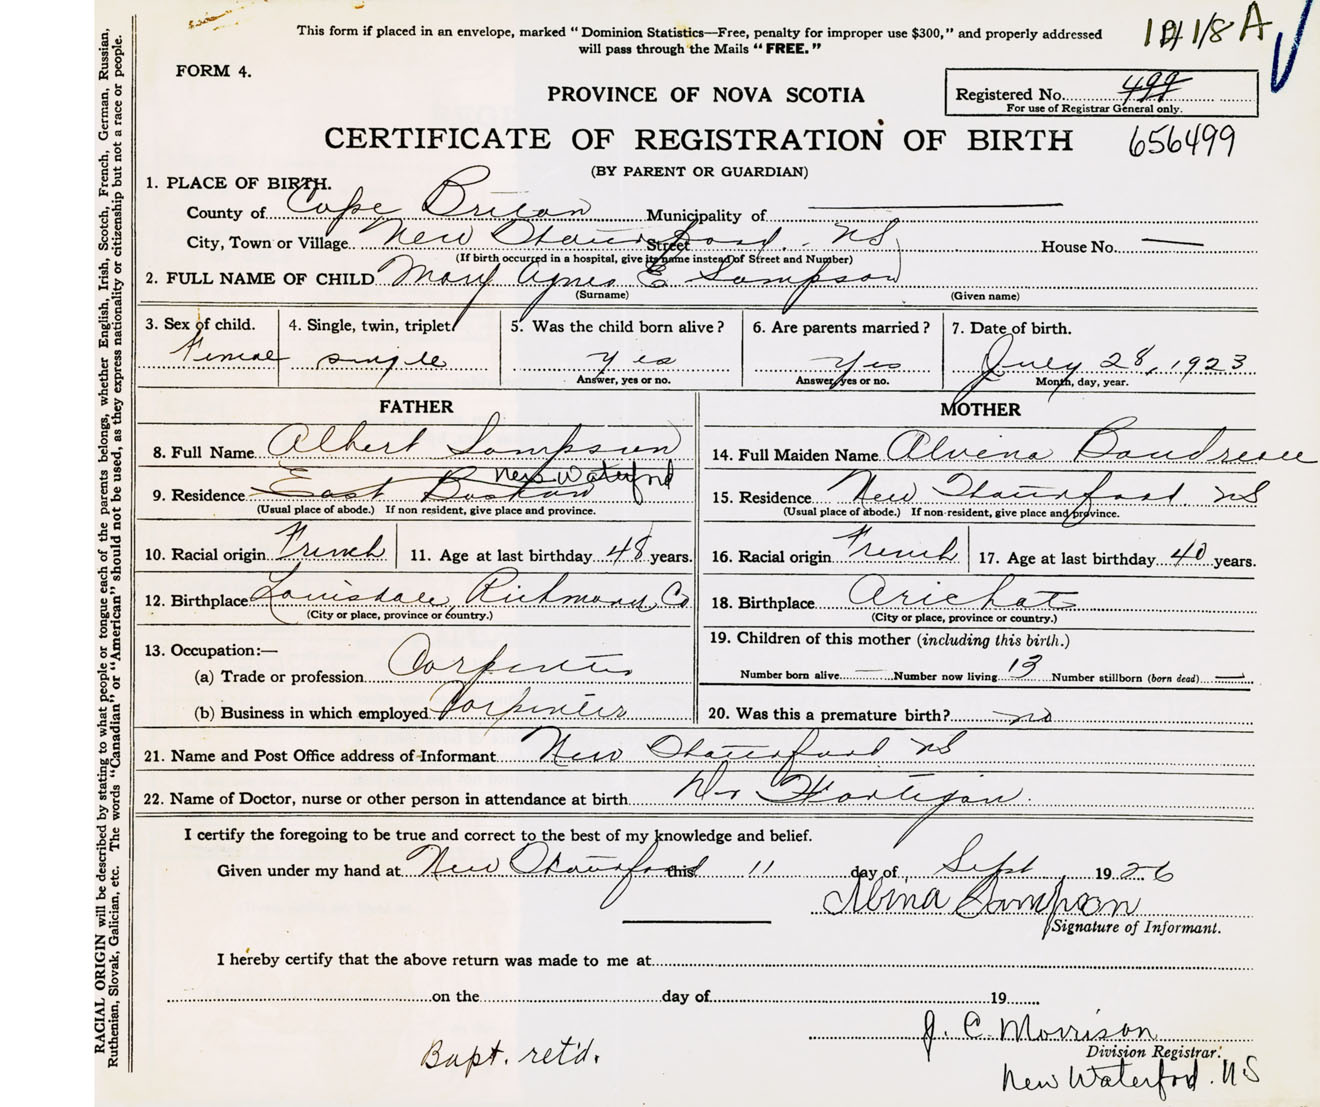 This form if placed in an envelope, marked "Dominion Statistics—Free, penalty for improper use $300," and properly addressed
will pass through the Mails "FREE."
FORM 4.
PROVINCE OF NOVA SCOTIA
Registered No. 499
For use of Registrar General only.
CERTIFICATE OF REGISTRATION OF BIRTH 656499
(BY PARENT OR GUARDIAN)
1. PLACE OF BIRTH.
County of Cape Breton Municipality of
City, Town or Village New Waterford. NS Street House No.
(If birth occurred in a hospital, give its name instead of Street and Number)
2. FULL NAME OF CHILD Mary Agnes E Sampson
(Surname) (Given name)
3. Sex of child. 4. Single, twin, triplet. 5. Was the child born alive? 6. Are parents married? 7. Date of birth.
Female single yes Yes July 28, 1923
Answer, yes or no. Answer, yes or no. Month, day, year.
FATHER MOTHER
8. Full Name Albert Sampson 14. Full Maiden Name Alvina Boudreau
New Waterford
9. Residence East Boston 15. Residence New Waterford. NS
(Usual place of abode.) If non resident, give place and province. (Usual place of abode.) If non-resident, give place and province.
10. Racial origin French 11. Age at last birthday 48 years. 16. Racial origin French 17. Age at last birthday 40 years.
12. Birthplace Louisdale, Richmond Co 18. Birthplace Arichat
(City or place, province or country.) (City or place, province or country.)
13. Occupation:— 19. Children of this mother (including this birth.)
(a) Trade or profession Carpenter Number born alive Number now living 13 Number stillborn (born dead)
(b) Business in which employed Carpenter 20. Was this a premature birth? no
21. Name and Post Office address of Informant New Waterford NS
22. Name of Doctor, nurse or other person in attendance at birth Dr Hartigan.
I certify the foregoing to be true and correct to the best of my knowledge and belief.
Given under my hand at New Waterford this 11 day of Sept 1926
Albina Sampson
Signature of Informant.
I hereby certify that the above return was made to me at
on the day of 19
J. C. Morrison
Division Registrar.
Bapt. ret'd.
New Waterford. N S
RACIAL ORIGIN will be described by stating to what people or tongue each of the parents belongs, whether English, Irish, Scotch, French, German, Russian,
Ruthenian, Slovak, Galician, etc. The words "Canadian" or "American" should not be used, as they express nationality or citizenship but not a race or people.